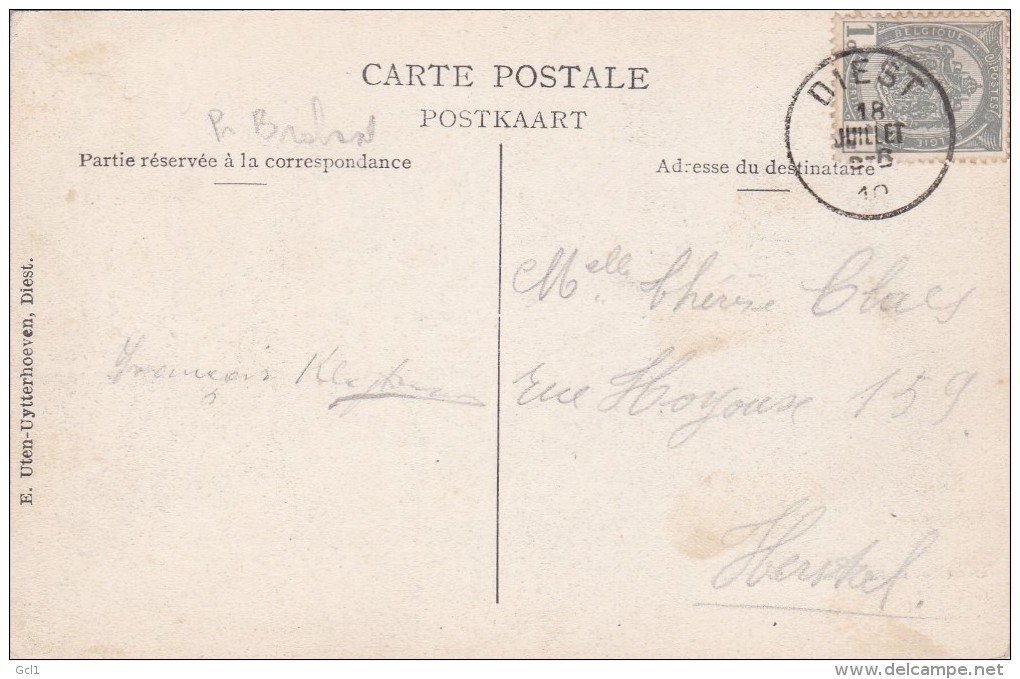 CARTE POSTALE
POSTKAART
Partie réservée à la correspondance
Adresse du destinataire
BELGIQUE
POSTES
1
DIEST
18
JUILLET
10
E. Uten-Uytterhoeven, Diest.
François
Melle Thérèse Claes
rue Hoyoux 159
Herstal.
Gcl1
delcampe.net